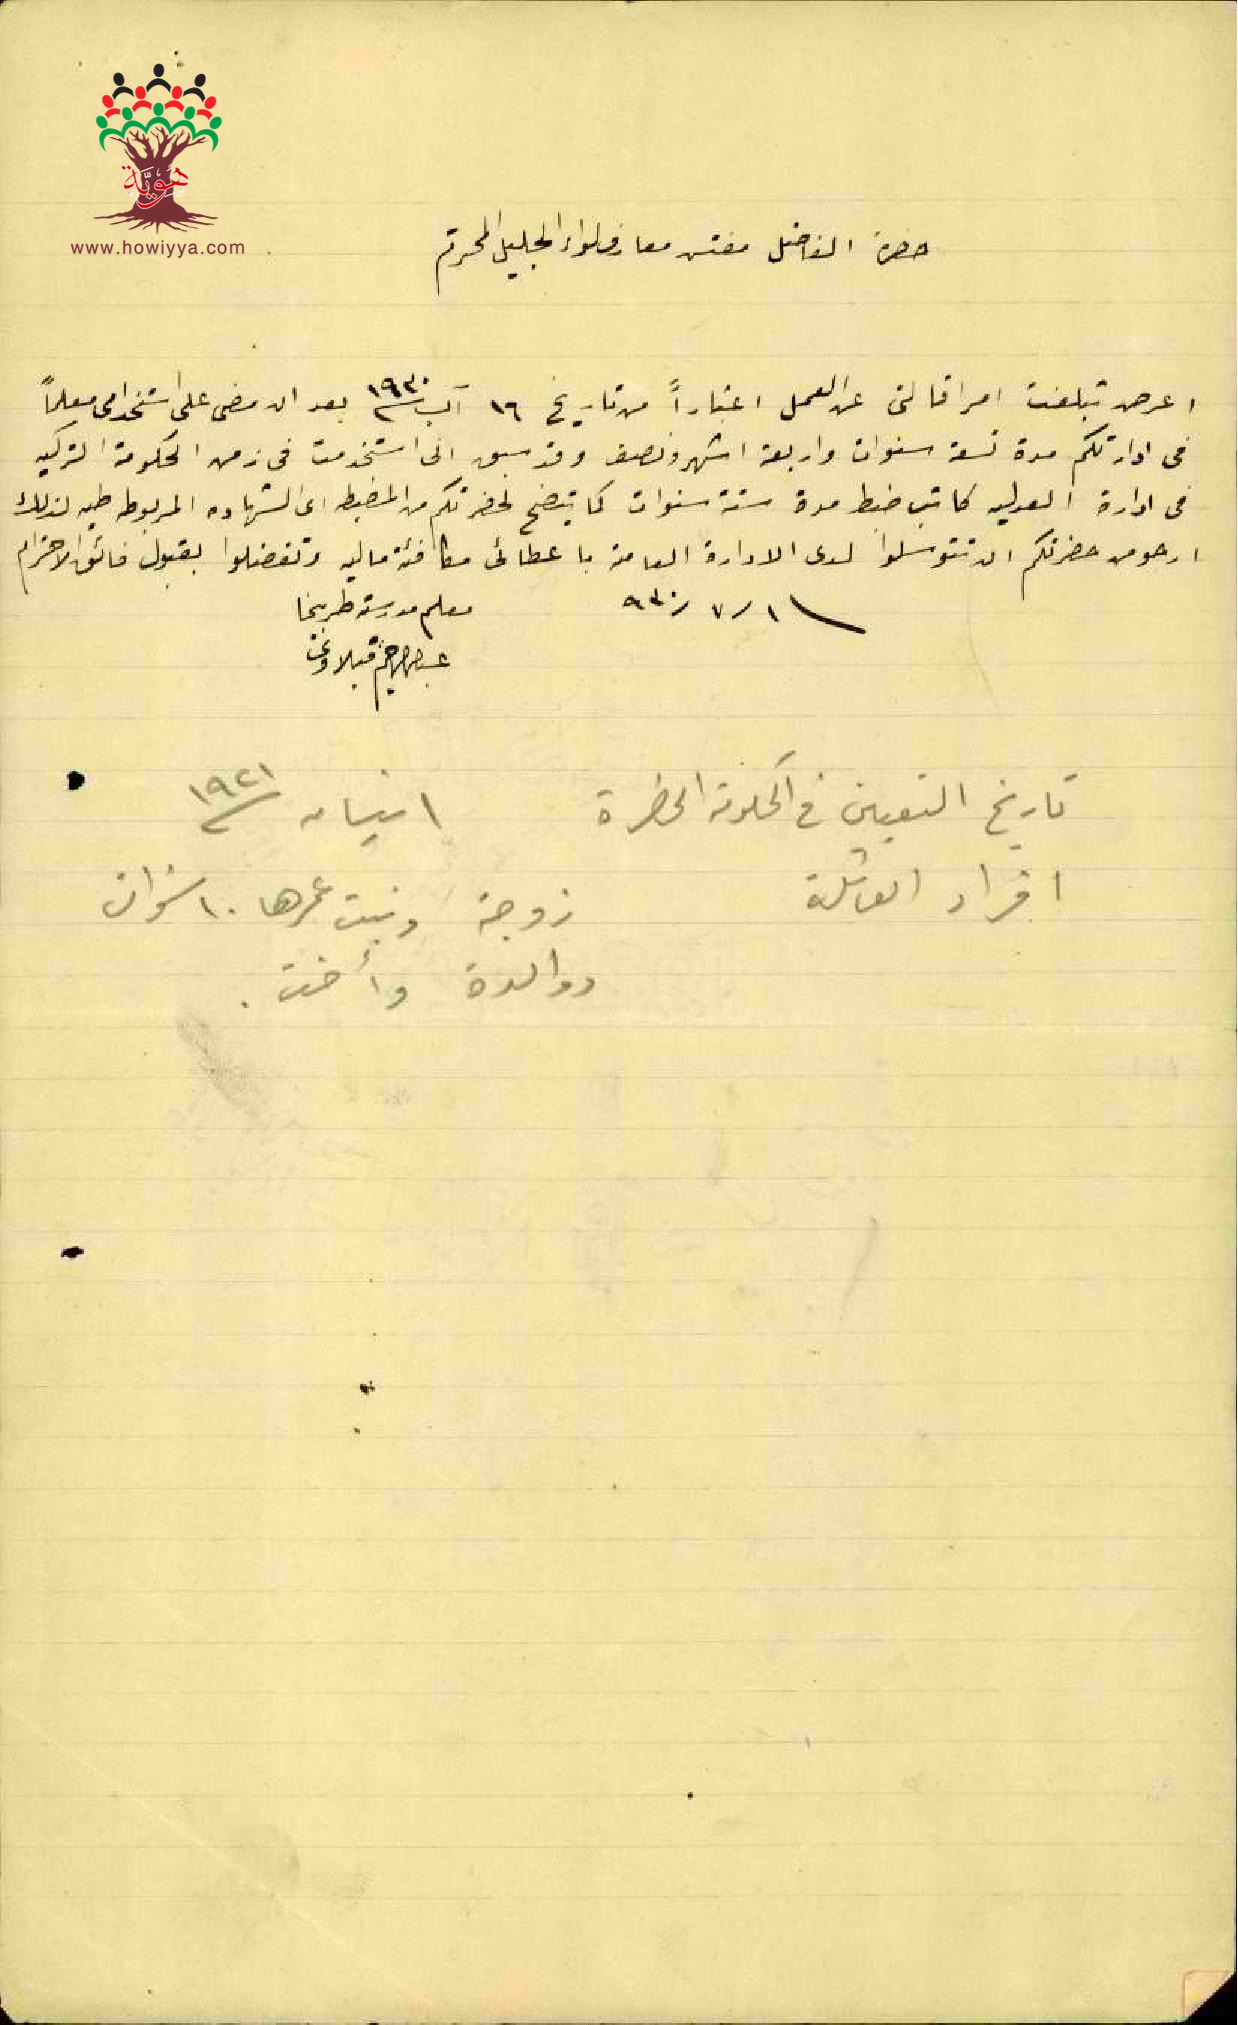 هوية
www.howiyya.com
حضرة الفاضل مفتش معارف لواء الجليل المحترم
اعرض تبلغت امر اقالتي عن العمل اعتباراً من تاريخ ١٦ آب سنة ١٩٣٠ بعد ان مضى على استخدامي معلماً
في ادارتكم مدة تسعة سنوات واربعة اشهر ونصف وقد سبق اني استخدمت في زمن الحكومة التركيه
في ادارة العدليه كاتب ضبط مدة ستة سنوات كما يتضح لحضرتكم من المضبطه اي الشهاده المربوطه طيه لذلك
ارجو من حضرتكم ان تتوسلوا لدى الادارة العامة باعطائي مكافئة ماليه وتفضلوا بقبول فائق الاحترام
٩٣٠/٧/١
معلم مدرسة طربيخا
تاريخ التعيين في الحكومة الحاضرة ١ نيسان سنة ١٩٢١
افراد العائلة زوجة وبنت عمرها ١٠ سنوات
ووالدة وأخت .